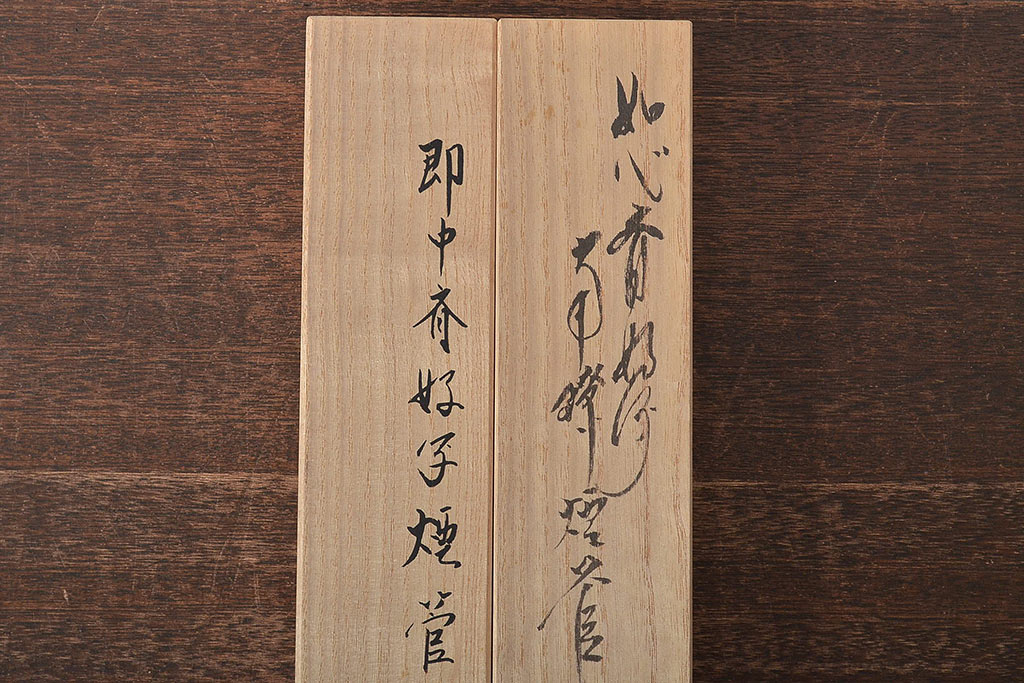 如心斎好
南鐐
煙管
即中斎好写煙管